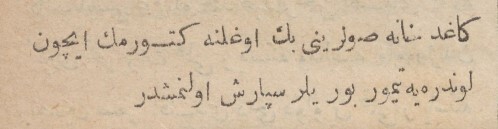 كاغد خانه صولرینی بك اوغلنه كتورمك ایچون
لوندره‌یه تیمور بوریلر سپارش اولنمشدر